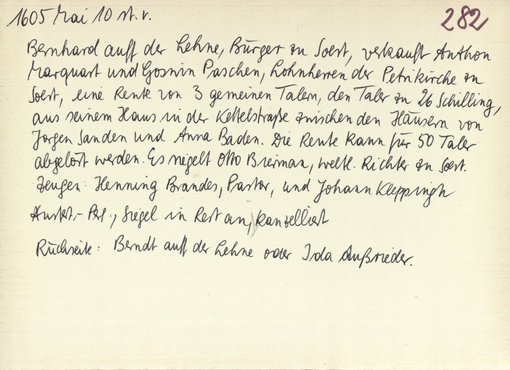 1605 Mai 10 st. v.
282
Bernhard auff der Lehne, Bürger zu Soest, verkauft Anthon
Marquart und Goswin Paschen, Lohnherren der Petrikirche zu
Soest, eine Rente von 3 gemeinen Talern, den Taler zu 26 Schilling,
aus seinem Haus in der Kettelstraße zwischen den Häusern von
Jorgen Sanden und Anna Baden. Die Rente kann für 50 Taler
abgelöst werden. Es siegelt Otto Breiman, weltl. Richter zu Soest.
Zeugen: Henning Brandes, Pastor, und Johann Kleppingh
Ausfert.-Perg., Siegel in Rest an, kanzelliert
Rückseite: Berndt auff der Lehne oder Ida